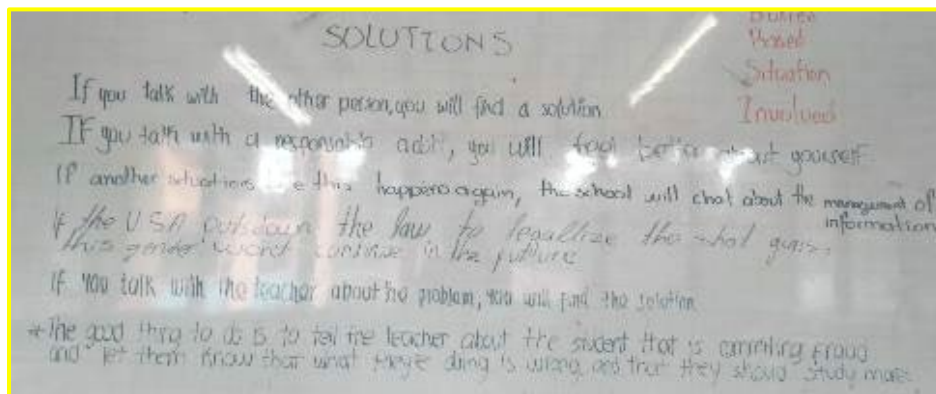 SOLUTIONS
Posed
Situation
Involved
If you talk with the other person, you will find a solution
If you talk with a responsable adult, you will feel better about yourself
If another situations like this happens again, the school will chat about the management of information
If the USA puts down the law to legallize the shot guns,
this gender won't continue in the future
If you talk with the teacher about the problem, you will find the solution
*The good thing to do is to tell the teacher about the student that is commiting fraud
and let them know that what they're doing is wrong, and that they should study more.